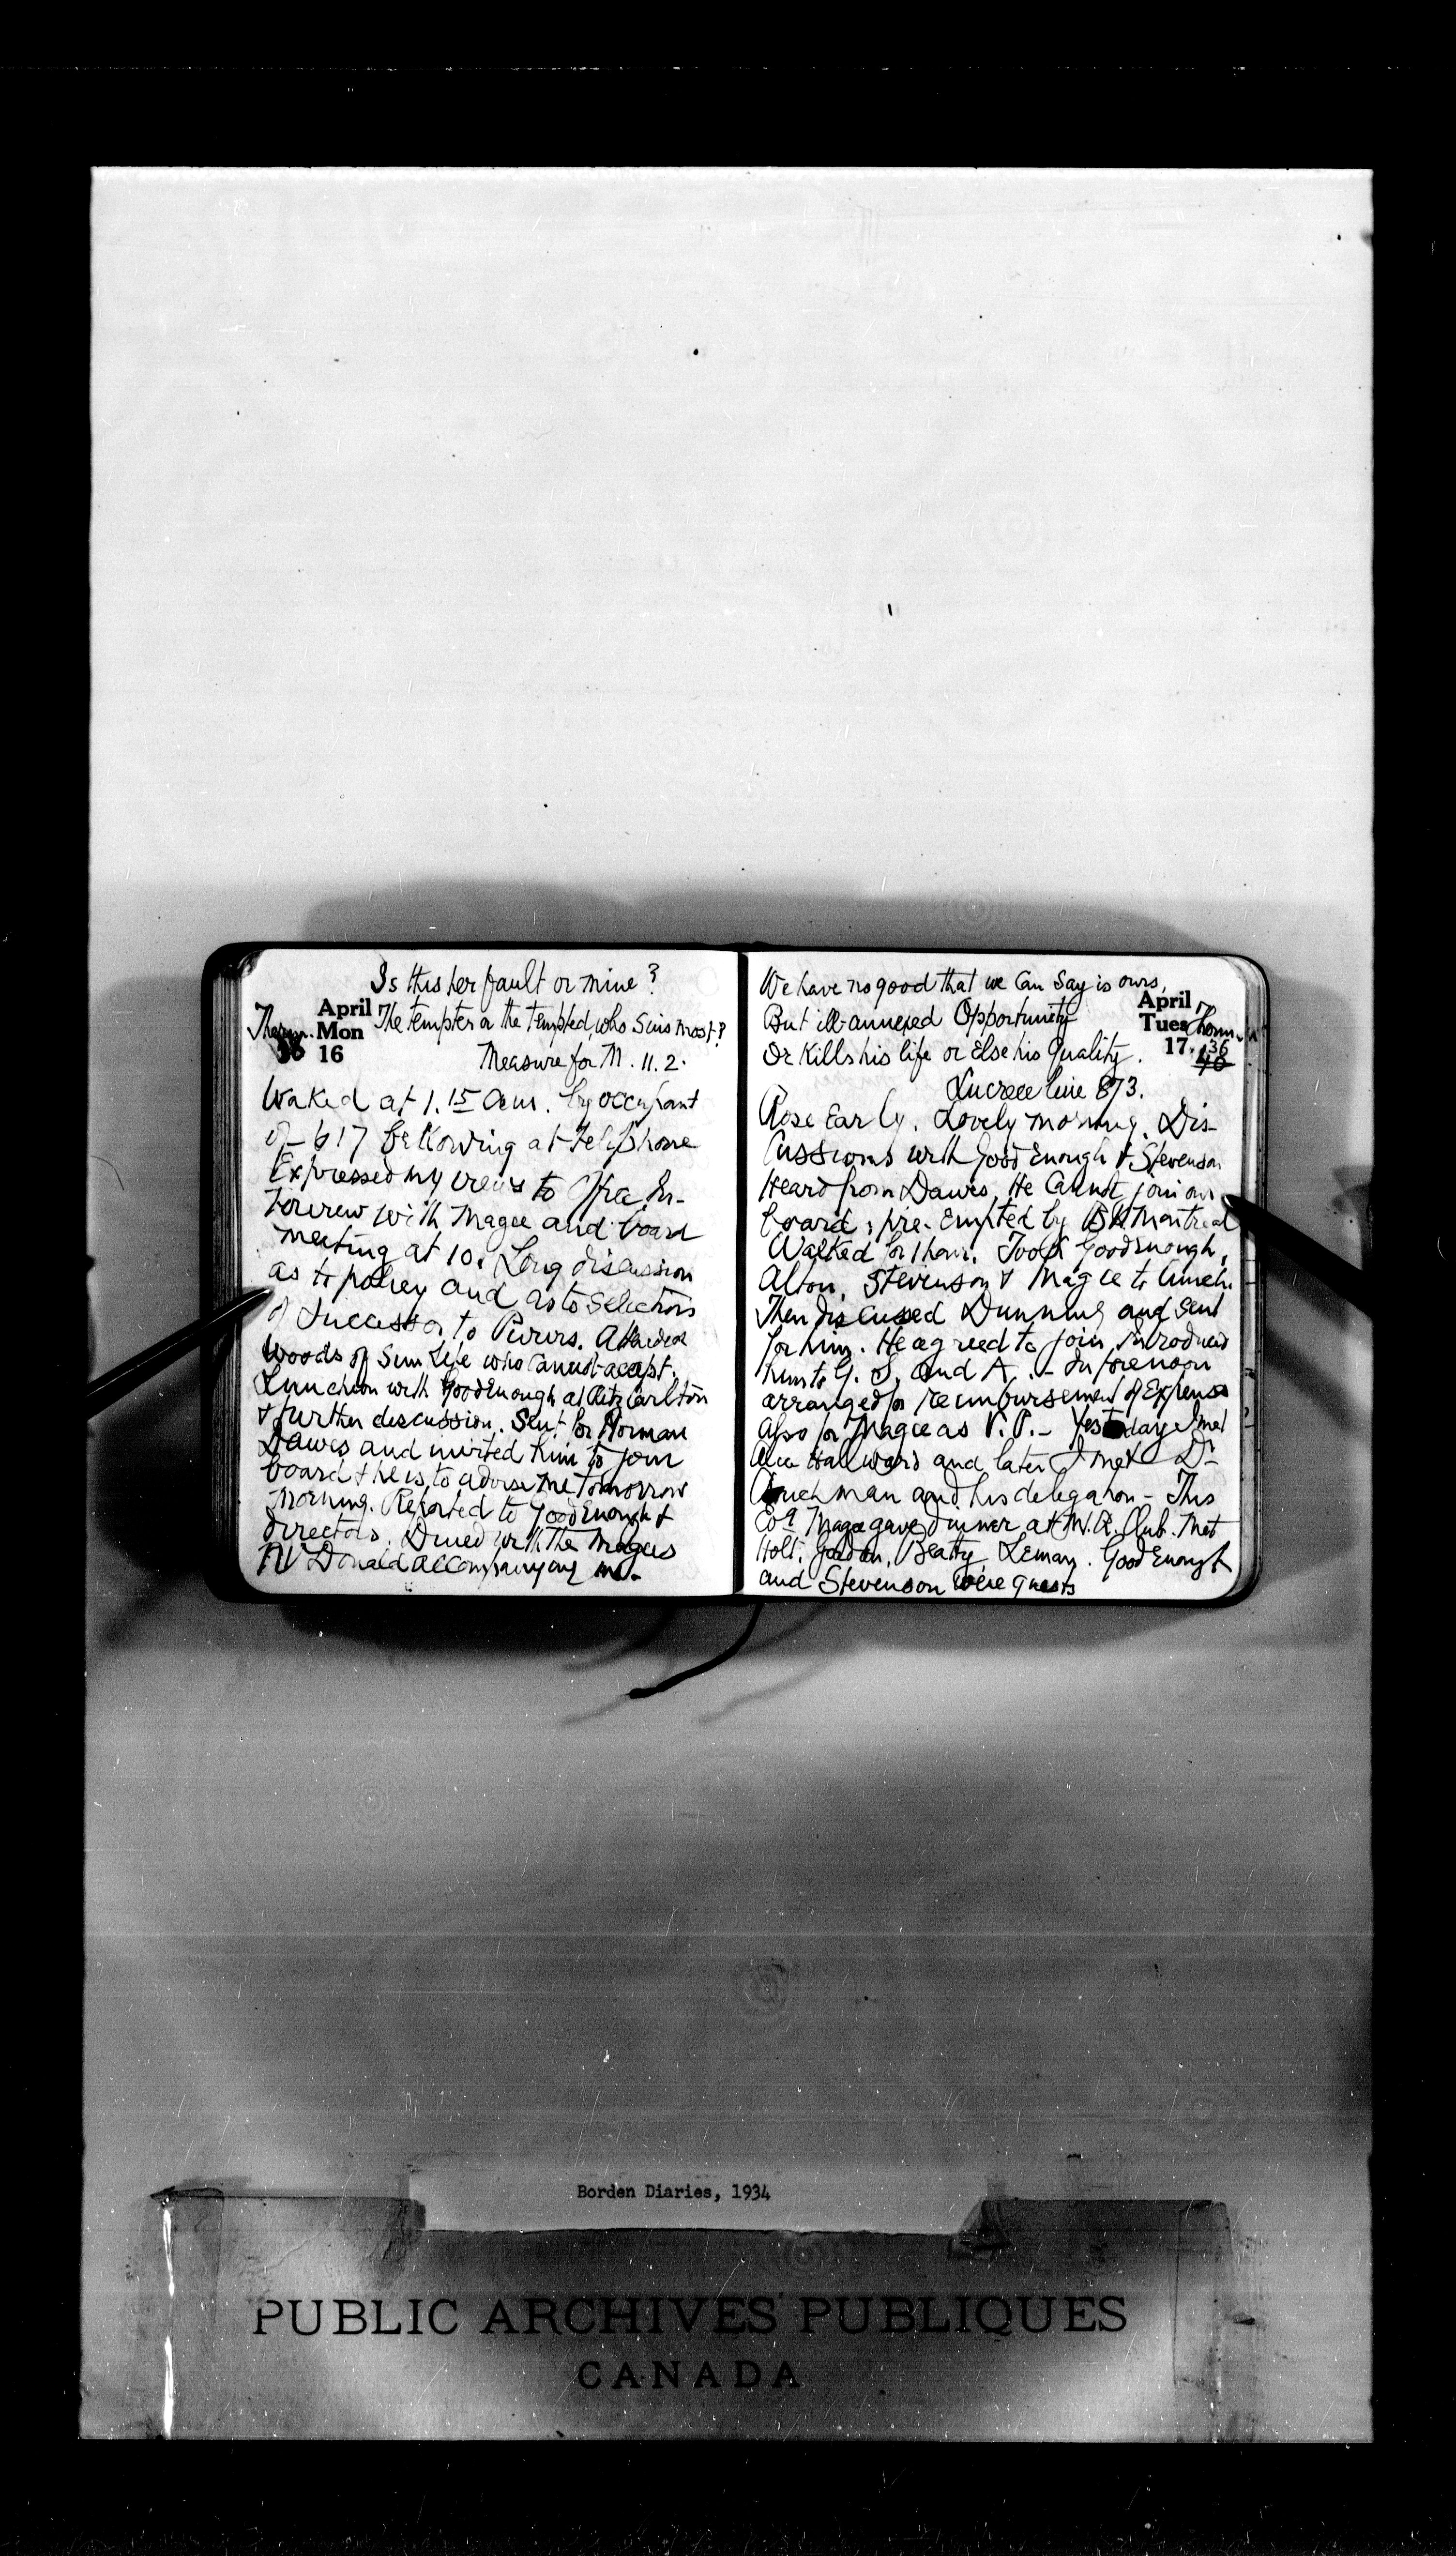 Is this her fault or mine?
April
Therm. Mon The tempter or the tempted, who sins most?
16
Measure for M. 11. 2.
Waked at 1.15 a.m. by occupant
of 617 bellowing at telephone
Expressed my views to Office. In-
terview with Magee and board
meeting at 10. Long discussion
as to policy and as to selection
of successor to Purvis.
Woods of Sun Life who cannot accept.
Luncheon with GoodEnough at Ritz Carlton
& further discussion. Sent for Norman
Dawes and invited him to join
board & he is to advise me tomorrow
morning. Reported to GoodEnough &
directors. Dined with the Magees
Donald accompanying me.
We have no good that we can say is ours,
April
But ill-annexed Opportunity
Tues Therm.
Or Kills his life or Else his Quality.
17. 36
40
Lucrece line 873.
Rose Early. Lovely morning. Dis-
cussions with GoodEnough & Stevenson
Heard from Dawes. He Cannot join our
board; pre-Empted by Bk Montreal
Walked for 1 hour. Took GoodEnough,
Alton, Stevenson & Magee to lunch.
Then discussed Dunning and sent
for him. He agreed to join. Introduced
him to G. S. and A. - In forenoon
arranged for reimbursement of Expenses
also for Magee as V.P. - Yesterday I met
and later I met Dr
man and his delegation - This
Evg Magee gave dinner at M.R. Club. Met
Holt, Gordon, Beatty, Leman. GoodEnough
and Stevenson were guests
Borden Diaries, 1934
PUBLIC ARCHIVES PUBLIQUES
CANADA